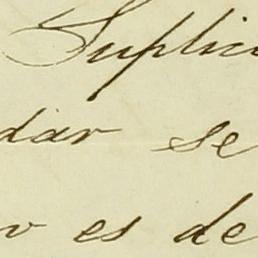 Suplic
dar se
o es de